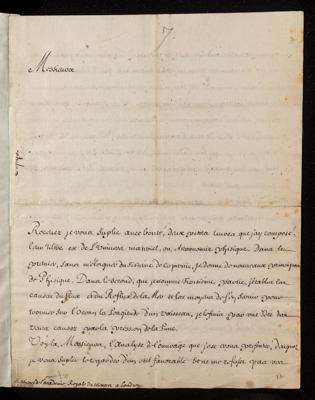 7
Messieurs
Recevez je vous suplie avec bonté, deux petits livres que j'ay composé
L'un titré est de L'Univers materiel, ou Astronomie physique. Dans le
premier, sans m'eloigner du sisteme de Copernic, je donne de nouveaux principes
de Physique. Dans le second, que je nomme troisieme partie, j'etablis les
causes du flux et du Reflux de la Mer et les moyens de s'en servir pour
trouver sur l'Ocean la Longitude d'un vaisseau, je le finis par une Idée des
causes par la pression de la Lune.
Voyla, Messieurs, L'Analyse de l'ouvrage que j'ose vous presenter, daignez
je vous suplie le regarder d'un oeil favorable et ne me refuser pas vos
Royale
a Londres